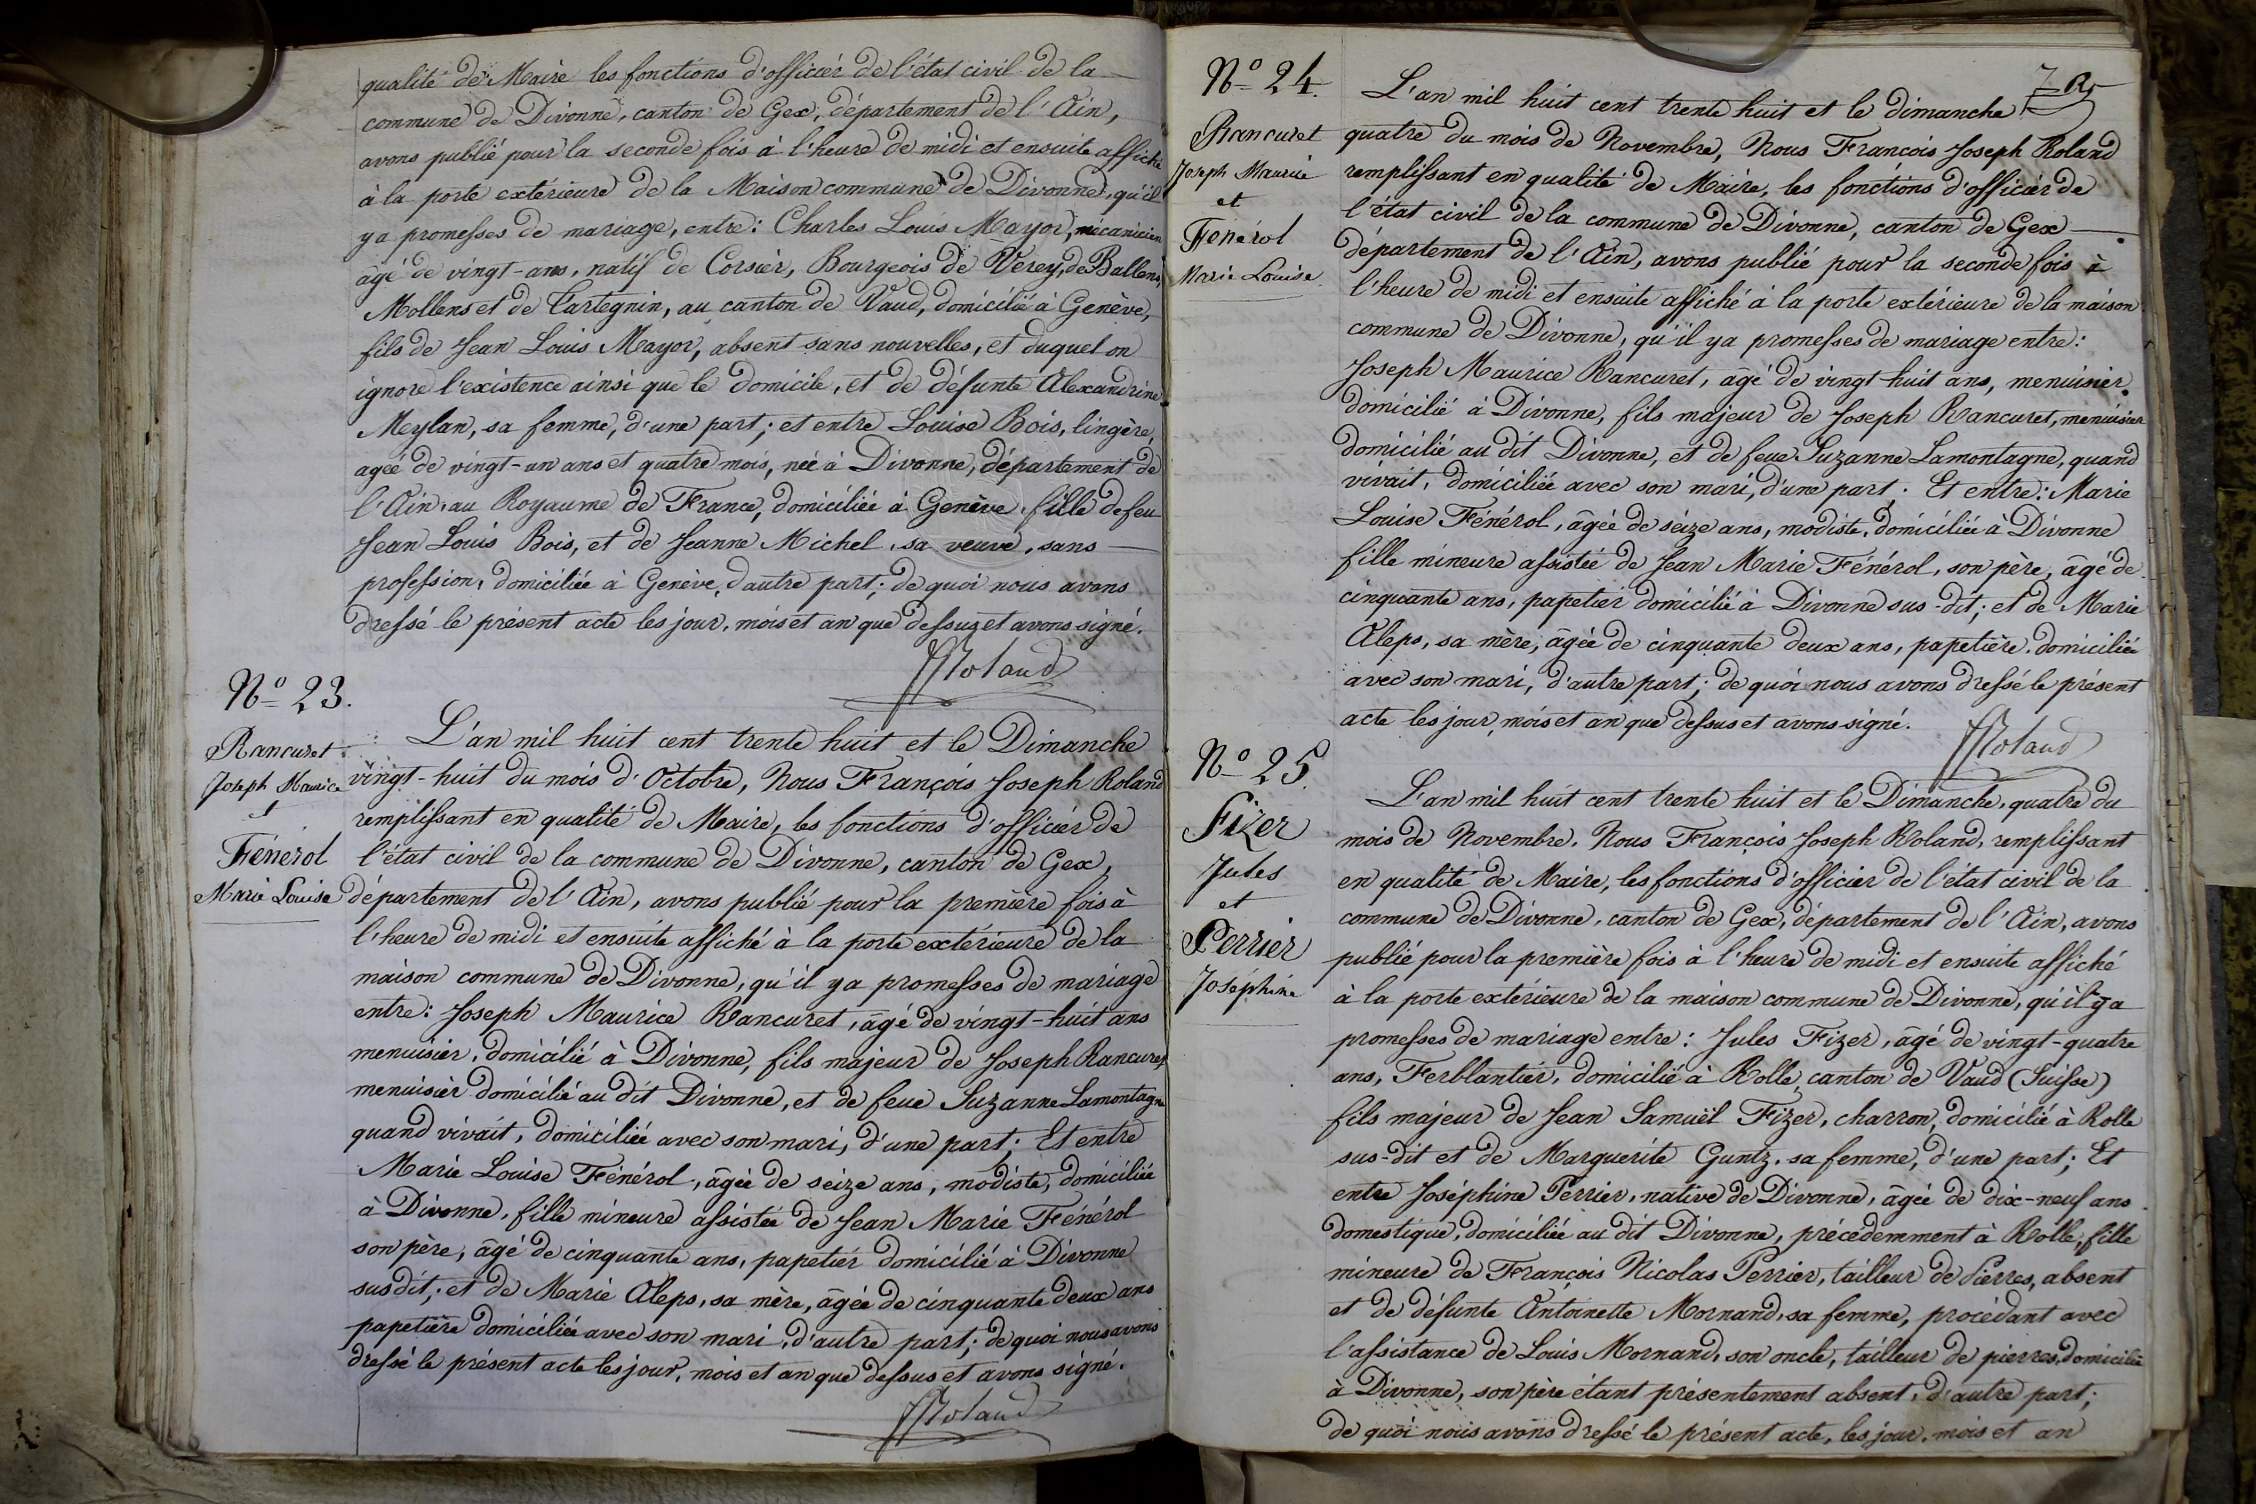 qualité de Maire les fonctions d'officier de l'état civil de la
commune de Divonne, canton de Gex, département de l'Ain,
avons publié pour la seconde fois à l'heure de midi et ensuite affiché
à la porte extérieure de la Maison commune de Divonne, qu'il
y a promesses de mariage, entre: Charles Louis Mayor, mécanicien
âgé de vingt-ans, natif de Corsier, Bourgeois de Verey, de Ballens,
Mollens et de Tartegnin, au canton de Vaud, domicilié à Genève,
fils de Jean Louis Mayor, absent sans nouvelles, et duquel on
ignore l'existence ainsi que le domicile, et de défunte Alexandrine
Meylan, sa femme, d'une part; et entre Louise Bois, lingère,
agée de vingt-un ans et quatre mois, née à Divonne, département de
l'Ain, au Royaume de France, domiciliée à Genève, fille de feu
Jean Louis Bois, et de Jeanne Michel, sa veuve, sans
profession, domiciliée à Genève, d'autre part; de quoi nous avons
dressé le présent acte les jour, mois et an que dessus et avons signé.
Roland
No 23.
Rancuret
Joseph Maurice
et
Fénérol
Marie Louise
L'an mil huit cent trente huit et le Dimanche
vingt-huit du mois d'Octobre, Nous François Joseph Roland
remplissant en qualité de Maire, les fonctions d'officier de
l'état civil de la commune de Divonne, canton de Gex,
département de l'Ain, avons publié pour la première fois à
l'heure de midi et ensuite affiché à la porte extérieure de la
maison commune de Divonne, qu'il y a promesses de mariage
entre: Joseph Maurice Rancuret, âgé de vingt-huit ans
menuisier, domicilié à Divonne, fils majeur de Joseph Rancuret,
menuisier domicilié au dit Divonne, et de feue Suzanne Lamontagne
quand vivait, domiciliée avec son mari, d'une part; Et entre
Marie Louise Fénérol, âgée de seize ans, modiste, domiciliée
à Divonne, fille mineure assistée de Jean Marie Fénérol
son père, âgé de cinquante ans, papetier domicilié à Divonne
susdit; et de Marie Aleps, sa mère, âgée de cinquante deux ans
papetière domiciliée avec son mari, d'autre part; de quoi nous avons
dressé le présent acte les jour, mois et an que dessus et avons signé.
Roland
No 24.
Rancuret
Joseph Maurice
et
Fénérol
Marie Louise
L'an mil huit cent trente huit et le dimanche
quatre du mois de Novembre, Nous François Joseph Roland
remplissant en qualité de Maire, les fonctions d'officier de
l'état civil de la commune de Divonne, canton de Gex
département de l'Ain, avons publié pour la seconde fois à
l'heure de midi et ensuite affiché à la porte extérieure de la maison
commune de Divonne, qu'il y a promesses de mariage entre:
Joseph Maurice Rancuret, âgé de vingt huit ans, menuisier
domicilié à Divonne, fils majeur de Joseph Rancuret, menuisier
domicilié au dit Divonne, et de feue Suzanne Lamontagne, quand
vivait, domiciliée avec son mari, d'une part; Et entre: Marie
Louise Fénérol, âgée de seize ans, modiste, domiciliée à Divonne
fille mineure assistée de Jean Marie Fénérol, son père, âgé de
cinquante ans, papetier domicilié à Divonne sus-dit; et de Marie
Aleps, sa mère, âgée de cinquante deux ans, papetière, domiciliée
avec son mari, d'autre part; de quoi nous avons dressé le présent
acte les jour, mois et an que dessus et avons signé.
Roland
No 25.
Fizer
Jules
et
Perrier
Joséphine
L'an mil huit cent trente huit et le Dimanche, quatre du
mois de Novembre, Nous François Joseph Roland, remplissant
en qualité de Maire, les fonctions d'officier de l'état civil de la
commune de Divonne, canton de Gex, département de l'Ain, avons
publié pour la première fois à l'heure de midi et ensuite affiché
à la porte extérieure de la maison commune de Divonne, qu'il y a
promesses de mariage entre: Jules Fizer, âgé de vingt-quatre
ans, Ferblantier, domicilié à Rolle, canton de Vaud (Suisse)
fils majeur de Jean Samuël Fizer, charron, domicilié à Rolle
sus-dit et de Marguerite Guntz, sa femme, d'une part; Et
entre Joséphine Perrier, native de Divonne, âgée de dix-neuf ans
domestique, domiciliée au dit Divonne, précédemment à Rolle, fille
mineure de François Nicolas Perrier, tailleur de Pierres, absent
et de défunte Antoinette Mornand, sa femme, procédant avec
l'assistance de Louis Mornand, son oncle, tailleur de pierres, domicilié
à Divonne, son père étant présentement absent, d'autre part;
de quoi nous avons dressé le présent acte, les jour, mois et an